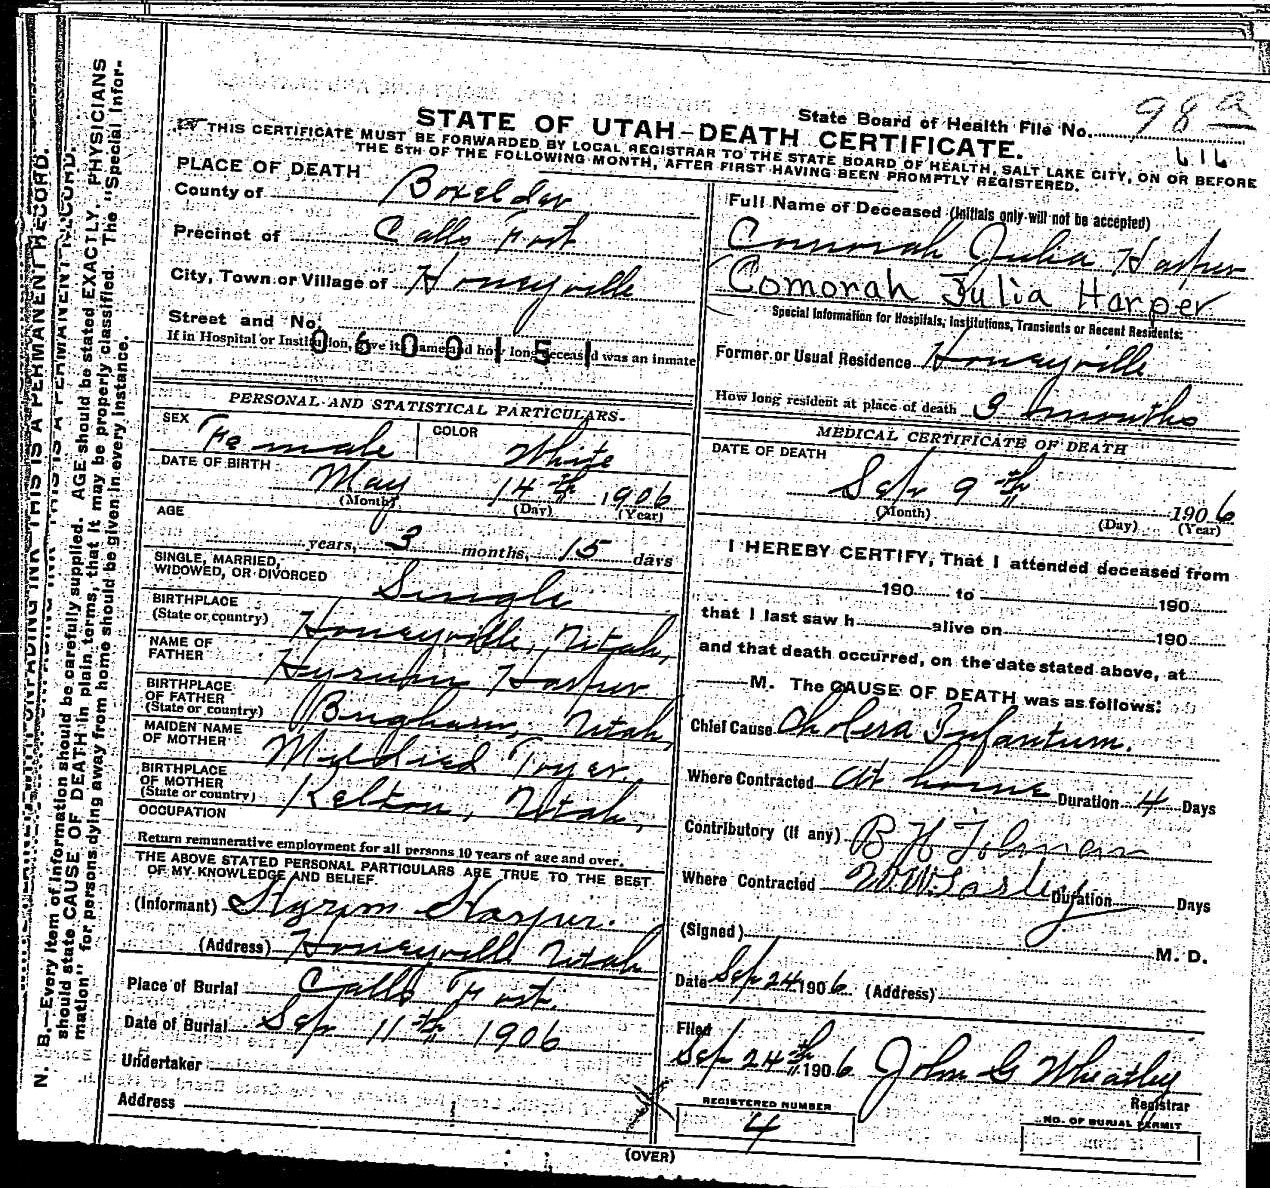 State Board of Health File No. 98 a
616
STATE OF UTAH—DEATH CERTIFICATE.
THIS CERTIFICATE MUST BE FORWARDED BY LOCAL REGISTRAR TO THE STATE BOARD OF HEALTH, SALT LAKE CITY, ON OR BEFORE
THE 5TH OF THE FOLLOWING MONTH, AFTER FIRST HAVING BEEN PROMPTLY REGISTERED.
PLACE OF DEATH
County of Boxelder
Precinct of Calls Fort
City, Town or Village of Honeyville
Street and No.
0600151
If in Hospital or Institution, give its name and how long deceased was an inmate
PERSONAL AND STATISTICAL PARTICULARS.
SEX Female COLOR White
DATE OF BIRTH May 14th 1906
(Month) (Day) (Year)
AGE
years, 3 months, 15 days
SINGLE, MARRIED,
WIDOWED, OR DIVORCED Single
BIRTHPLACE
(State or country) Honeyville, Utah,
NAME OF
FATHER Hyrum Harper
BIRTHPLACE
OF FATHER
(State or country) Brigham, Utah,
MAIDEN NAME
OF MOTHER Mildred Toyer.
BIRTHPLACE
OF MOTHER
(State or country) Kelton, Utah,
OCCUPATION
Return remunerative employment for all persons 10 years of age and over.
THE ABOVE STATED PERSONAL PARTICULARS ARE TRUE TO THE BEST
OF MY KNOWLEDGE AND BELIEF.
(Informant) Hyrum Harper.
(Address) Honeyville Utah
Place of Burial Calls Fort.
Date of Burial Sep 11th 1906
Undertaker
Address
Full Name of Deceased (Initials only will not be accepted)
Comorah Julia Harper
Comorah Julia Harper
Special Information for Hospitals, Institutions, Transients or Recent Residents:
Former or Usual Residence Honeyville
How long resident at place of death 3 months
MEDICAL CERTIFICATE OF DEATH
DATE OF DEATH
Sep 9th 1906
(Month) (Day) (Year)
I HEREBY CERTIFY, That I attended deceased from
190 to 190
that I last saw h alive on 190
and that death occurred, on the date stated above, at
M. The CAUSE OF DEATH was as follows:
Chief Cause Cholera Infantum.
Where Contracted at home Duration 4 Days
Contributory (if any) B H Tolman
Where Contracted Duration Days
(Signed) M. D.
Date Sep 24 1906 (Address)
Filed
Sep 24th 1906 John G Wheatley
Registrar
REGISTERED NUMBER
4
NO. OF BURIAL PERMIT
(OVER)
N. B.—Every item of information should be carefully supplied. AGE should be stated EXACTLY. PHYSICIANS
should state CAUSE OF DEATH in plain terms, that it may be properly classified. The "Special Infor-
mation" for persons dying away from home should be given in every instance.